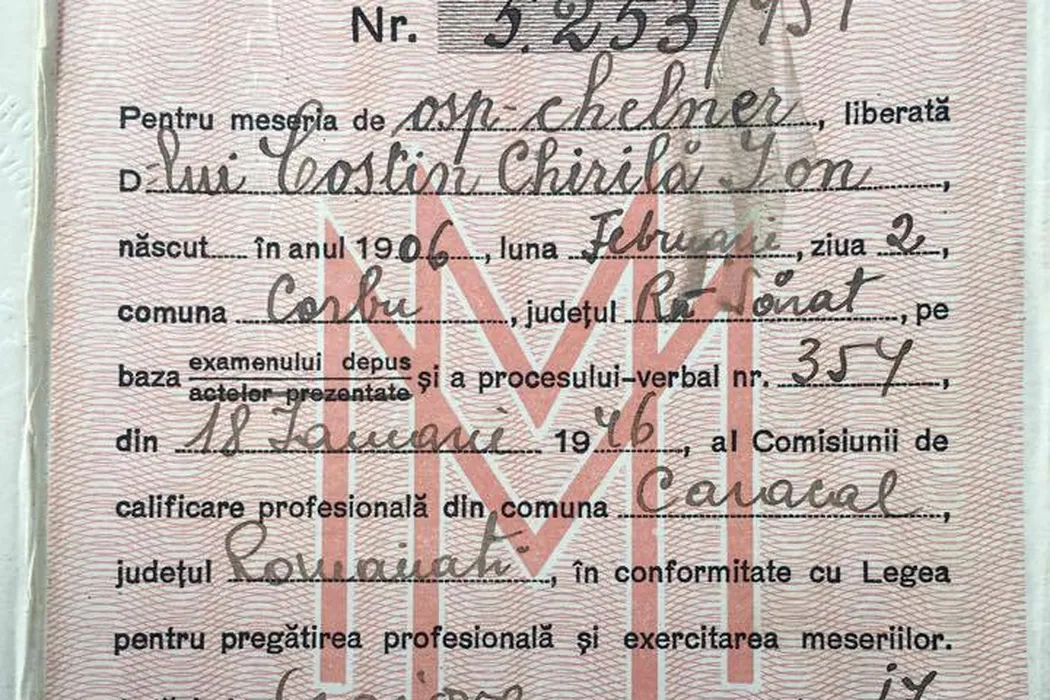 Nr. 5.253/951
Pentru meseria de osp-chelner, liberată
D-lui Costin Chirilă Ion,
născut..... în anul 1906, luna Februarie, ziua 2,
comuna Corbu, județul Râ Sărat, pe
baza examenului depus
actelor prezentate și a procesului-verbal nr. 354,
din 18 Ianuarie 1946, al Comisiunii de
calificare profesională din comuna Caracal,
județul Romanați, în conformitate cu Legea
pentru pregătirea profesională și exercitarea meseriilor.